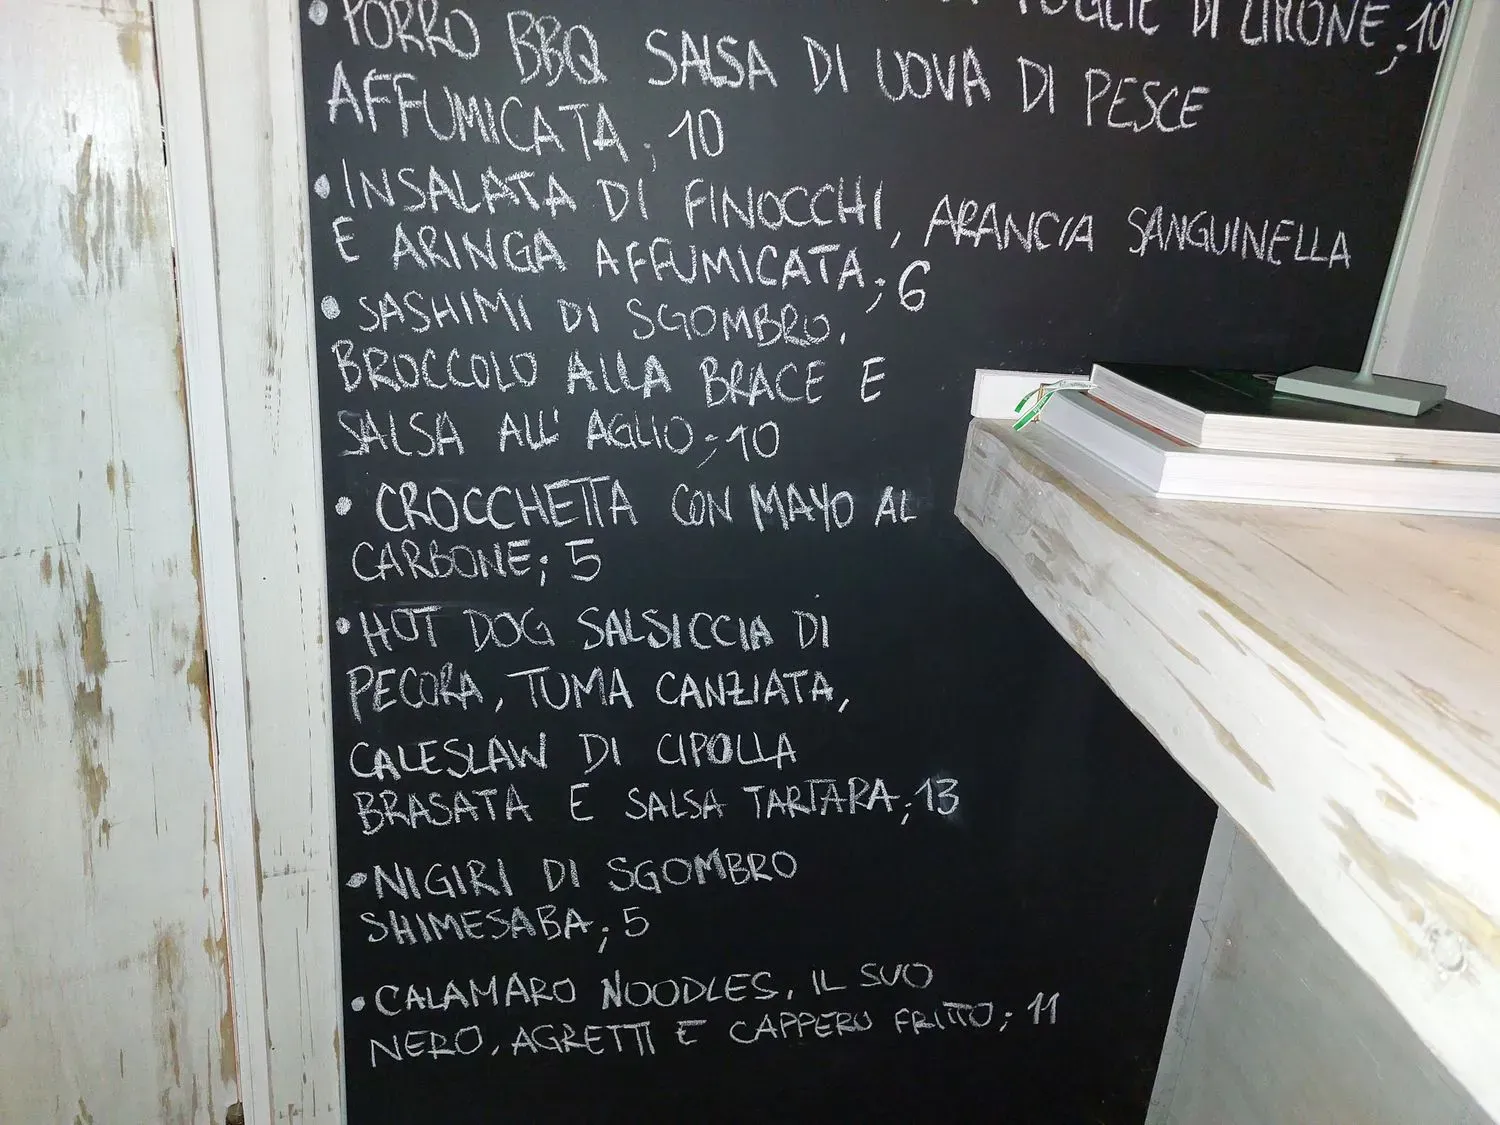 FOGLIE DI LIMONE; 10
• PORRO BBQ SALSA DI UOVA DI PESCE
AFFUMICATA; 10
• INSALATA DI FINOCCHI, ARANCIA SANGUINELLA
E ARINGA AFFUMICATA; 6
• SASHIMI DI SGOMBRO,
BROCCOLO ALLA BRACE E
SALSA ALL' AGLIO; 10
• CROCCHETTA CON MAYO AL
CARBONE; 5
• HOT DOG SALSICCIA DI
PECORA, TUMA CANZIATA,
CALESLAW DI CIPOLLA
BRASATA E SALSA TARTARA; 13
• NIGIRI DI SGOMBRO
SHIMESABA; 5
• CALAMARO NOODLES, IL SUO
NERO, AGRETTI E CAPPERO FRITTO; 11